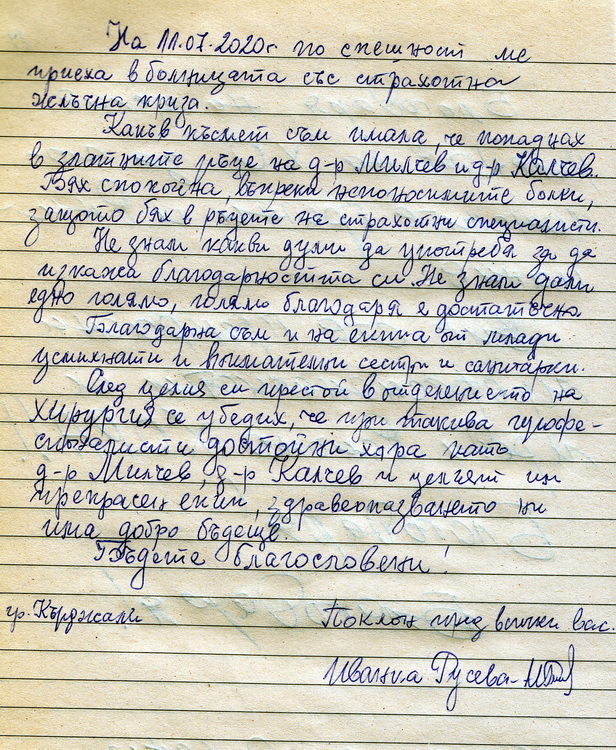 На 11.07.2020г. по спешност ме
приеха в болницата със страхотна
жлъчна криза.
Какъв късмет съм имала, че попаднах
в златните ръце на д-р Милчев и д-р Калчев.
Бях спокойна, въпреки непоносимите болки,
защото бях в ръцете на страхотни специалисти.
Не знам какви думи да употребя за да
изкажа благодарността си. Не знам дали
едно голямо, голямо благодаря е достатъчно.
Благодарна съм и на екипа от млади
усмихнати и внимателни сестри и санитарки.
След целия си престой в отделението на
хирургия се убедих, че при такива профе-
сионалисти достойни хора като
д-р Милчев, д-р Калчев и целият им
прекрасен екип, здравеопазването ни
има добро бъдеще.
Бъдете благословени!
гр. Кърджали Поклон пред всички вас.
Иванка Русева-